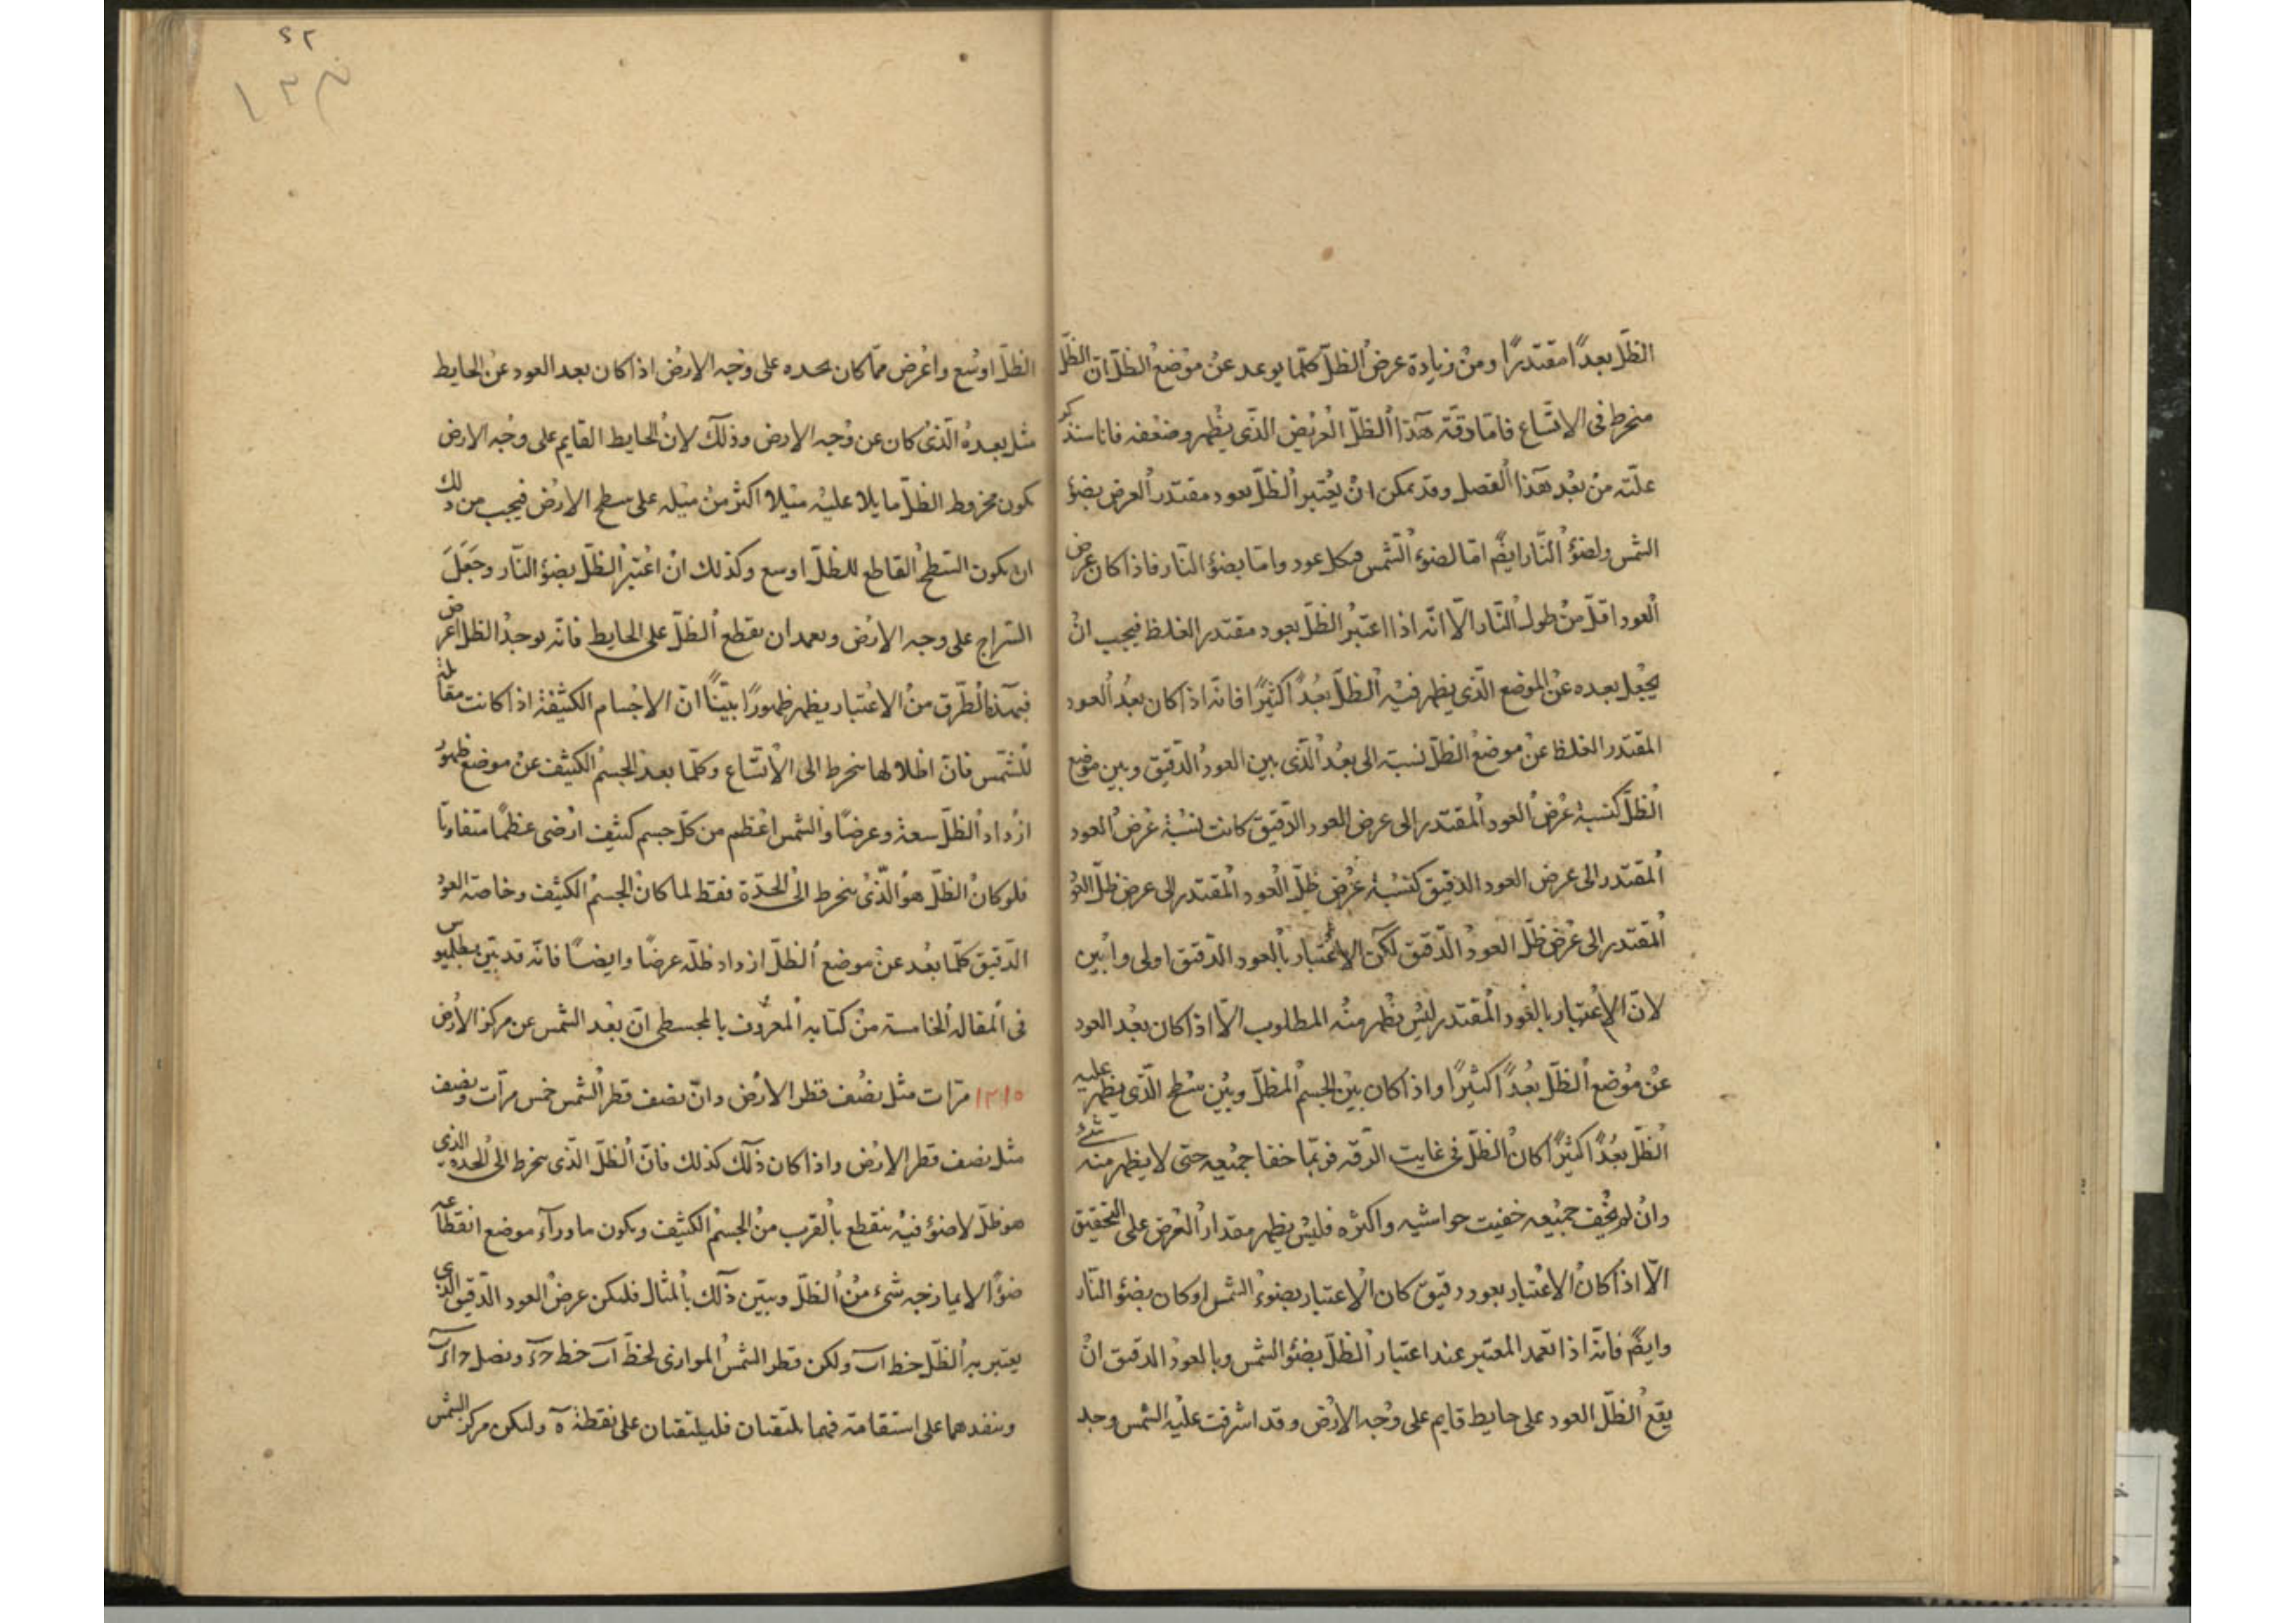 الظلّ بعدًا مقتدرًا ومن زيادة عرض الظلّ كلّما بوعد عن موضع الظلّ انّ الظلّ
منخرط فى الاتّساع فامّا دقّة هذا الظلّ العريض الذّى يظهر وضعفه فانا سنذكر
علّته من بعد هذا الفصل وقد يمكن ان يعتبر الظلّ بعود مقتدر العرض بضؤ
الشمس ولضؤ النّار ايضًا امّا لضوء الشمس فبكل عود وامّا بضؤ النّار فاذا كان عرض
العود اقلّ من طول النّار الّا انّه اذا اعتبر الظلّ بعود مقتدر الغلظ فيجب ان
يجعل بعده عن الموضع الّذى يظهر فيه الظلّ بعدًا كثيرًا فانّه اذا كان بعد العود
المقتدر الغلظ عن موضع الظلّ نسبته الى بعد الّذى بين العود الدّقيق وبين موضع
الظلّ كنسبة عرض العود المقتدر الى عرض العود الدّقيق كانت نسبة عرض العود
المقتدر الى عرض العود الدقيق كنسبة عرض ظلّ العود المقتدر الى عرض ظلّ العود
المقتدر الى عرض ظلّ العود الدّقيق لكن الاعتبار بالعود الدّقيق اولى وابين
لانّ الاعتبار بالعود المقتدر ليس يظهر منه المطلوب الّا اذا كان بعد العود
عن موضع الظلّ بعدًا كثيرًا واذا كان بين الجسم المظلّ وبين سطح الّذى يظهر عليه
الظلّ بعدًا كثيرًا كان الظلّ فى غايت الرّقه فربّما خفا جميعه حتى لا يظهر منه شئ
وان لم يخف جميعه خفيت حواشيه واكثره فليس يظهر مقدار العرض على التحقيق
الّا اذا كان الاعتبار بعود دقيق كان الاعتبار بضوء الشمس او كان بضؤ النّار
وايضًا فانّه اذا تعمد المعتبر عند اعتبار الظلّ بضئو الشمس وبالعود الدقيق ان
يقع الظلّ العود على حايط قايم على وجه الارض وقد اشرقت عليه الشمس وجد
الظلّ اوسع واعرض ممّا كان يحده على وجه الارض اذا كان بعد العود عن الحايط
مثل بعده الّذى كان عن وجه الارض وذلك لان الحايط القايم على وجه الارض
يكون مخروط الظلّ مايلا عليه ميلا اكثر من ميله على سطح الارض فيجب من ذلك
ان يكون السّطح القاطع للظلّ اوسع وكذلك ان اعتبر الظلّ بضؤ النّار وجعل
السّراج على وجه الارض وبعمد ان يقطع الظلّ على الحايط فانّه يوجد الظلّ اعرض
فبهذه الطّرق من الاعتبار يظهر ظهورًا بيّنًا انّ الاجسام الكثيفة اذا كانت مقابلة
للشّمس فانّ اظلالها ينخرط الى الاتّساع وكلّما بعد الجسم الكثيف عن موضع ظهور
ازداد الظلّ سعة وعرضًا والشمس اعظم من كلّ جسم كثيف ارضى عظمًا متفاوتًا
فلو كان الظلّ هو الّذى ينخرط الى الحدّة فقط لما كان الجسم الكثيف وخاصة العود
الدّقيق كلّما بعد عن موضع الظلّ ازداد ظلّه عرضًا وايضًا فانّه قد بيّن بطلميوس
فى المقاله الخامسة من كتابه المعروف بالمجسطى انّ بعد الشمس عن مركز الارض
١٢١٥ مرّات مثل نصف قطر الارض وانّ نصف قطر الشمس خمس مرّات ونصف
مثل نصف قطر الارض واذا كان ذلك كذلك فانّ الظلّ الذّى ينخرط الى الحدة الذى
هو ظلّ لا ضوء فيه ينقطع بالقرب من الجسم الكثيف ويكون ما ورآء موضع انقطاعه
ضوًا لا يمازجه شىء من الظلّ ويبيّن ذلك بالمثال فليكن عرض العود الدّقيق الذى
يعتبر به الظلّ خط اب ولكن قطر الشمس الموازى لخطّ اب خط حء ونصل حا ءب
وننفدهما على استقامة فهما يلتقيان فليلتقيان على نقطة ه وليكن مركز الشمس